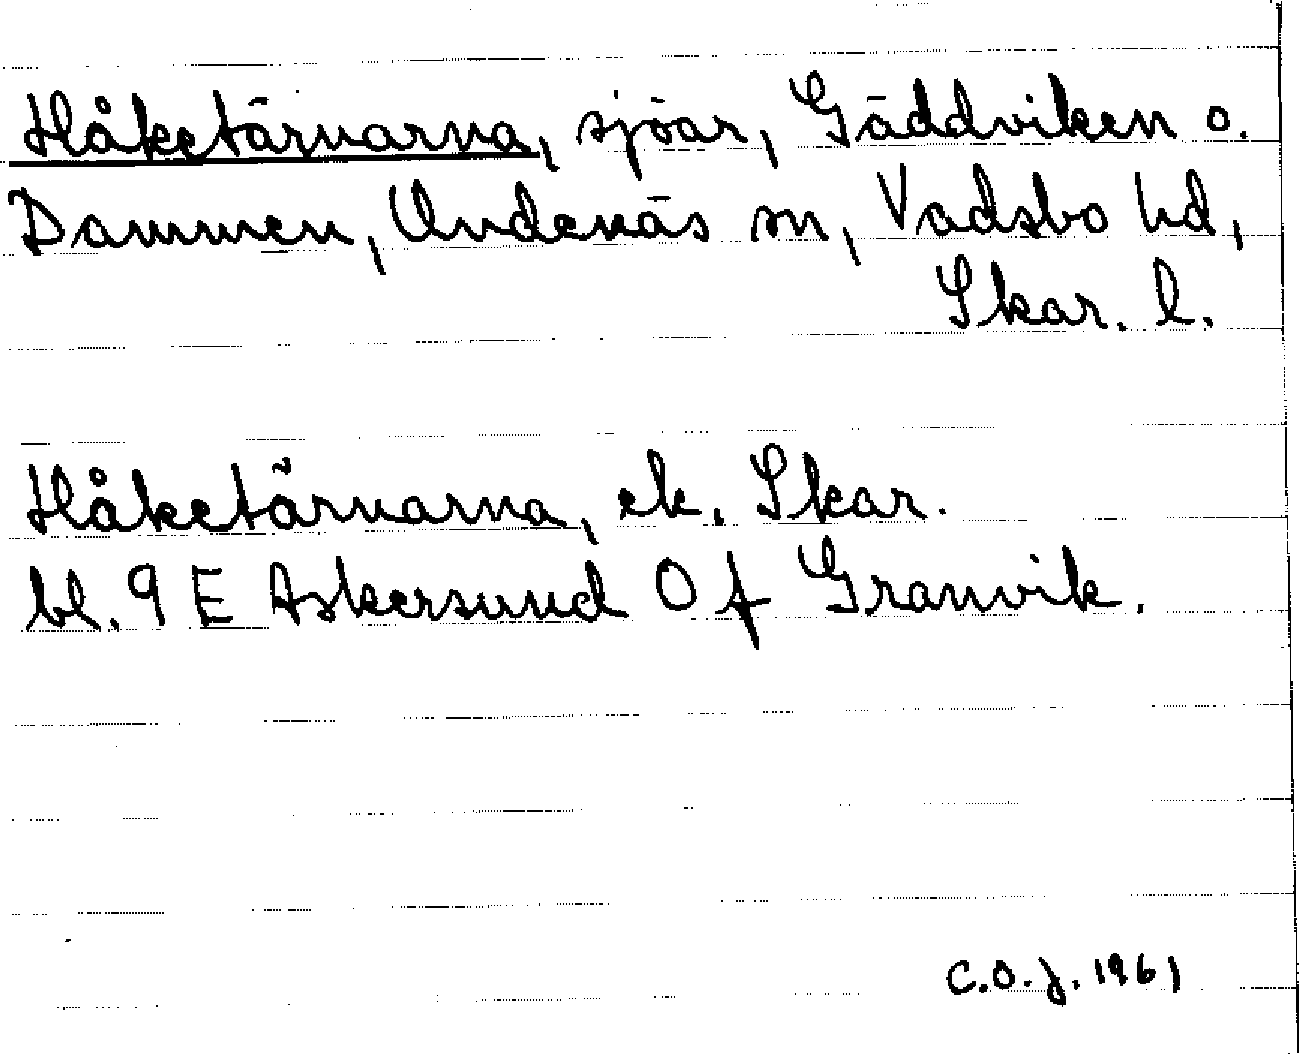 Håketärnarna, sjöar, Gäddviken o.
Dammen, Undenäs sn, Vadsbo hd,
Skar. l.
Håketärnarna, ek. Skar.
bl. 9 E Askersund 0 f Granvik.
C.O.J. 1961